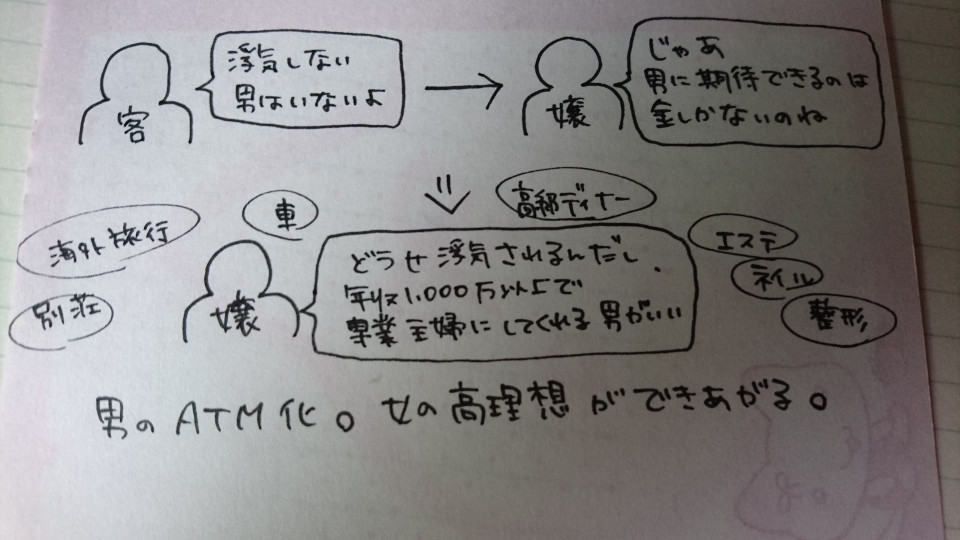 客
浮気しない
男はいないよ
嬢
じゃあ
男に期待できるのは
金しかないのね
海外旅行
車
高級ディナー
エステ
ネイル
別荘
整形
嬢
どうせ浮気されるんだし、
年収1.000万以上で
専業主婦にしてくれる男がいい
男のATM化。女の高理想ができあがる。